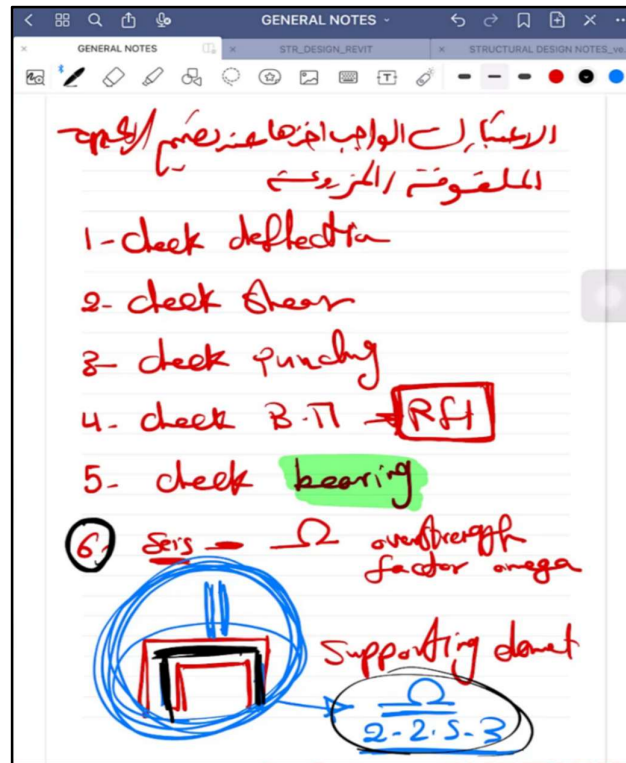 GENERAL NOTES
GENERAL NOTES
STR_DESIGN_REVIT
STRUCTURAL DESIGN NOTES_ve.
الاعتبارات الواجب اخذها عند تصميم الاعمدة
المزروعة
1- check deflection
2- check shear
3- check punching
4- check B.M → Rft
5- check bearing
6. Seis - Ω overstrength
factor omega
Supporting elemet
Ω
2-2.5-3